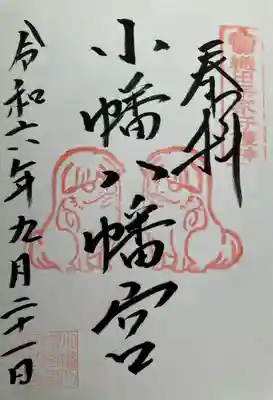 奉拝
小幡八幡宮
令和六年九月二十一日